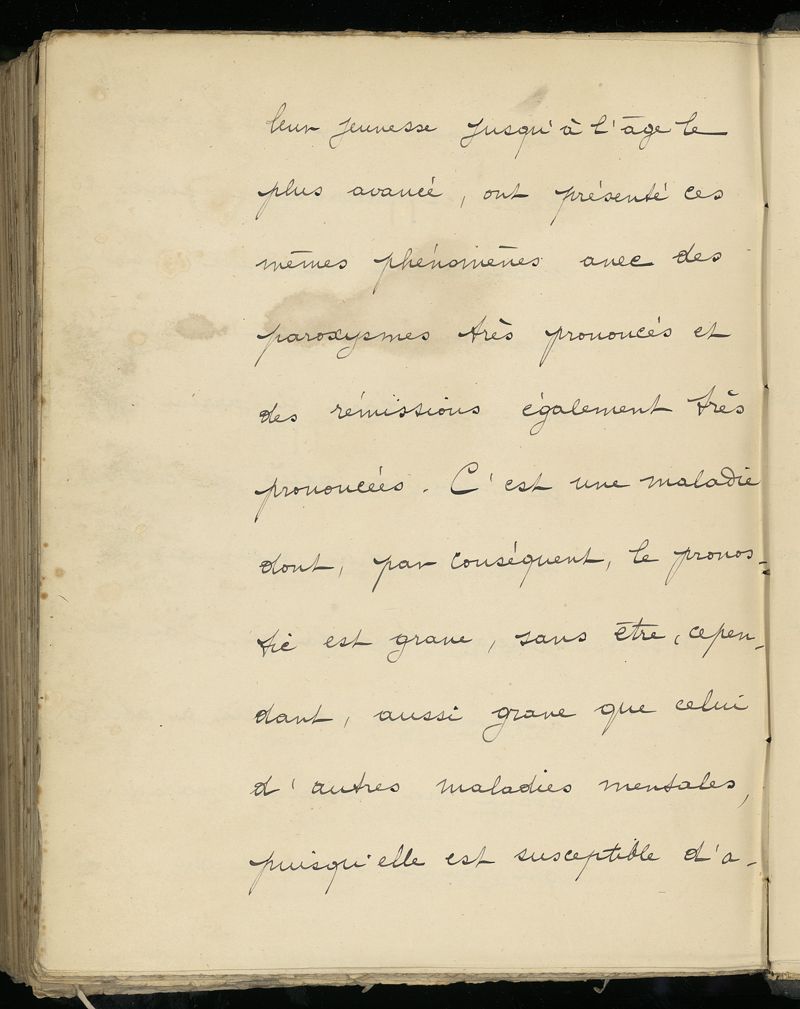 leur jeunesse jusqu'à l'âge le
plus avancé, ont présenté ces
mêmes phénomènes avec des
paroxysmes très prononcés et
des rémissions également très
prononcées. C'est une maladie
dont, par conséquent, le pronos-
tic est grave, sans être, cepen-
dant, aussi grave que celui
d'autres maladies mentales,
puisqu'elle est susceptible d'a-